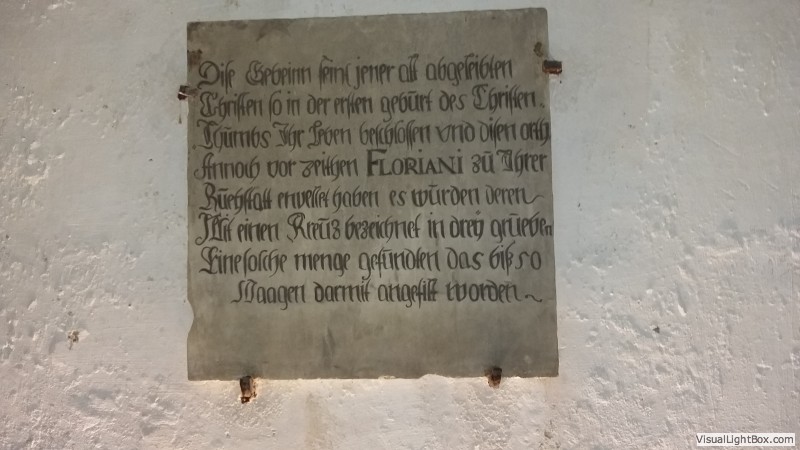 Dise Gebeinn seint jener alt abgeleibten
Christen so in der ersten gebūrt des Christen
Thūmbs Ihr Leben beschlossen vnd disen orth
Annoch vor zeithen FLORIANI zū Ihrer
Rūehstatt erwellet haben es wūrden deren
Mit einen Kreūz bezeichnet in dreÿ grūeben
Eine solche menge gefūndten das biß 50
Waagen darmit angefilt worden
VisualLightBox.com